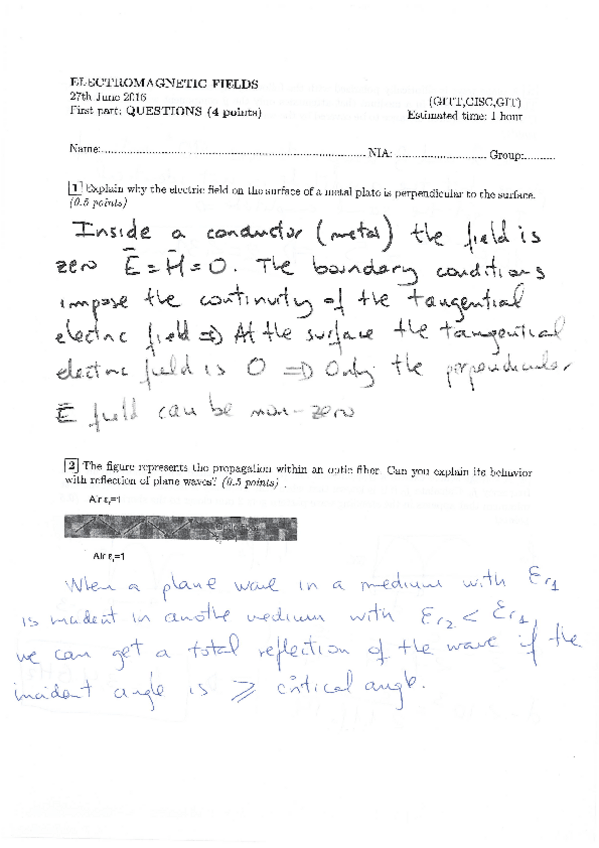 ELECTROMAGNETIC FIELDS
27th June 2016
(GITT,GISC,GIT)
First part: QUESTIONS (4 points)
Estimated time: 1 hour
Name:.......... NIA: .......... Group:..........
1 Explain why the electric field on the surface of a metal plate is perpendicular to the surface.
(0.5 points)
Inside a conductor (metal) the field is
zero Ē = H̄ = 0. The boundary conditions
impose the continuity of the tangential
electric field ⇒ At the surface the tangential
electric field is 0 ⇒ Only the perpendicular
Ē field can be non-zero
2 The figure represents the propagation within an optic fiber. Can you explain its behavior
with reflection of plane waves? (0.5 points) .
Air εr=1
Air εr=1
When a plane wave in a medium with Er1
is incident in anothe medium with Er2 < Er1,
we can get a total reflection of the wave if the
incident angle is ≥ critical angle.